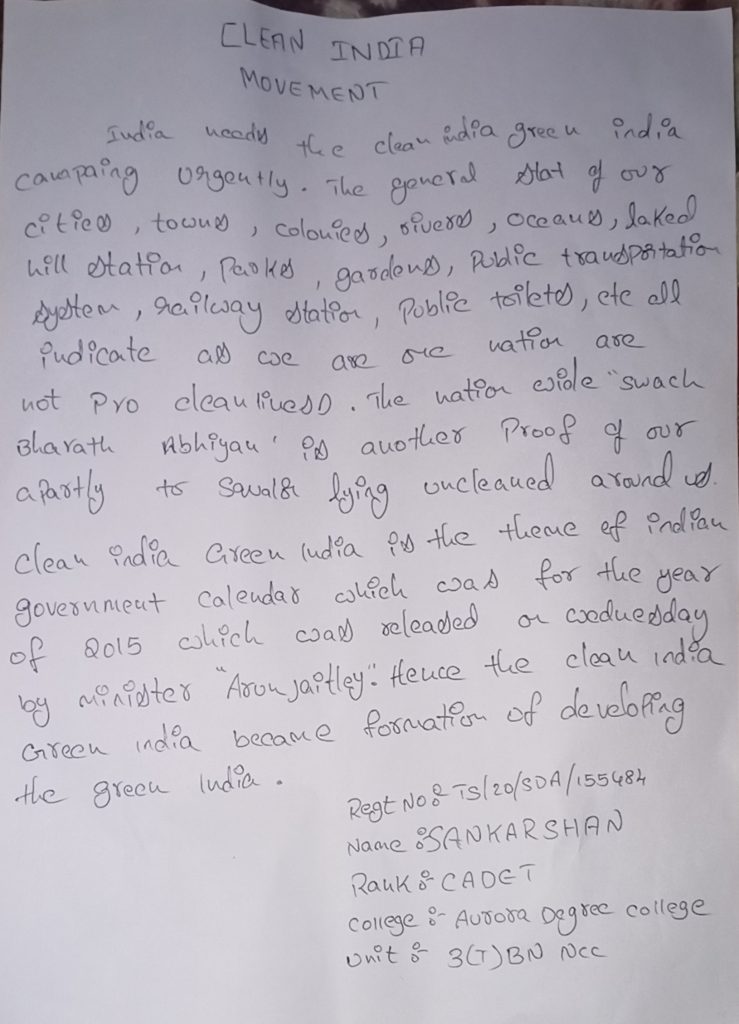 CLEAN INDIA
MOVEMENT
India needs the clean india green india
campaing urgently. The general stat of our
cities, towns, colonies, rivers, oceans, laked
hill station, parks, gardens, public transportation
system, railway station, public toilets, etc all
indicate as we are one nation are
not pro cleanliness. The nation wide "swach
Bharath Abhiyan' is another proof of our
apartly to lying uncleaned around us.
clean india Green india is the theme of indian
government calendar which was for the year
of 2015 which was released on wednesday
by minister "Arun jaitley". Hence the clean india
Green india became formation of developing
the green india.
Regt No: TS/20/SDA/155484
Name: SANKARSHAN
Rank: CADET
College:- Aurora Degree college
Unit: 3(T)BN NCC